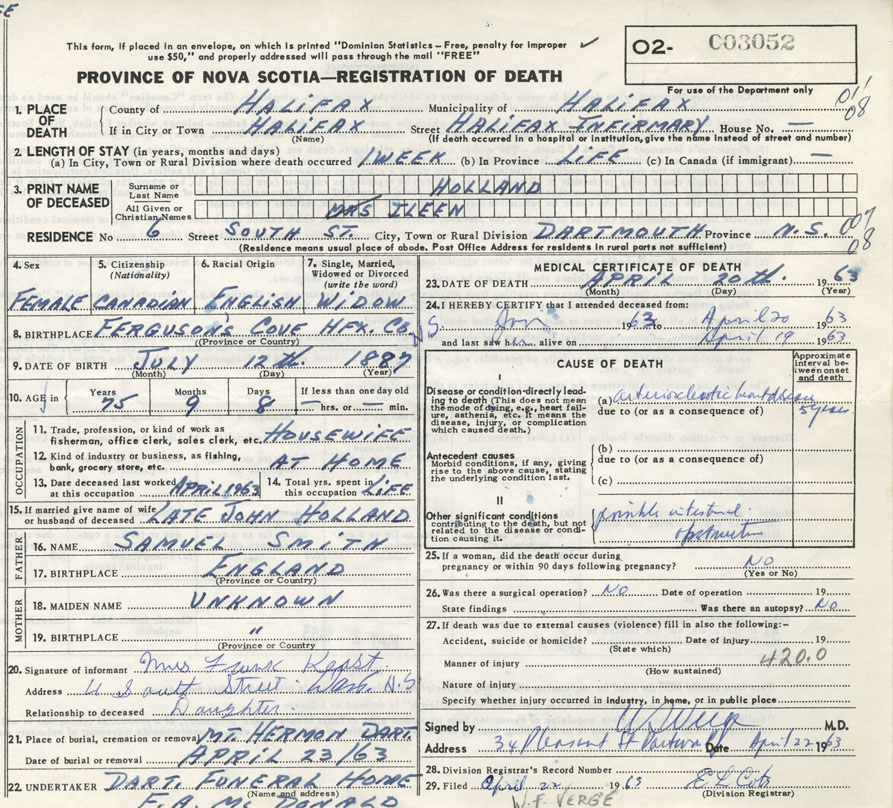 This form, if placed in an envelope, on which is printed "Dominion Statistics – Free, penalty for improper
use $50," and properly addressed will pass through the mail "FREE"
PROVINCE OF NOVA SCOTIA—REGISTRATION OF DEATH
O2- C03052
For use of the Department only
1. PLACE OF DEATH County of HALIFAX Municipality of HALIFAX 01/08
If in City or Town HALIFAX Street HALIFAX INFIRMARY House No. —
(Name) (If death occurred in a hospital or institution, give the name instead of street and number)
2. LENGTH OF STAY (in years, months and days)
(a) In City, Town or Rural Division where death occurred 1 WEEK (b) In Province LIFE (c) In Canada (if immigrant) —
3. PRINT NAME OF DECEASED Surname or Last Name HOLLAND
All Given or Christian Names MRS ILEEN
RESIDENCE No 6 Street SOUTH ST. City, Town or Rural Division DARTMOUTH Province N.S. 007/08
(Residence means usual place of abode. Post Office Address for residents in rural parts not sufficient)
4. Sex 5. Citizenship (Nationality) 6. Racial Origin 7. Single, Married, Widowed or Divorced (write the word)
FEMALE CANADIAN ENGLISH WIDOW
8. BIRTHPLACE FERGUSON'S COVE HFX. CO. N.S.
(Province or Country)
9. DATE OF BIRTH JULY 12 th. 1887
(Month) (Day) (Year)
10. AGE in Years 75 Months 9 Days 8 If less than one day old — hrs. or — min.
OCCUPATION
11. Trade, profession, or kind of work as fisherman, office clerk, sales clerk, etc. HOUSEWIFE
12. Kind of industry or business, as fishing, bank, grocery store, etc. AT HOME
13. Date deceased last worked at this occupation APRIL 1963 14. Total yrs. spent in this occupation LIFE
15. If married give name of wife or husband of deceased LATE JOHN HOLLAND
FATHER
16. NAME SAMUEL SMITH
17. BIRTHPLACE ENGLAND
(Province or Country)
MOTHER
18. MAIDEN NAME UNKNOWN
19. BIRTHPLACE "
(Province or Country)
20. Signature of informant Mrs Frank
Address South Street Dart. N.S
Relationship to deceased Daughter
21. Place of burial, cremation or removal MT. HERMAN DART.
Date of burial or removal APRIL 23/63
22. UNDERTAKER DART. FUNERAL HOME
(Name and address)
MEDICAL CERTIFICATE OF DEATH
23. DATE OF DEATH APRIL 20 th. 1963
(Month) (Day) (Year)
24. I HEREBY CERTIFY that I attended deceased from:
Jan 1963 to April 20 1963
and last saw her alive on April 19 1963
CAUSE OF DEATH
Approximate interval between onset and death
I
Disease or condition directly leading to death (This does not mean the mode of dying, e.g., heart failure, asthenia, etc. It means the disease, injury, or complication which caused death.)
(a) arteriosclerotic heart disease 5 years
due to (or as a consequence of)
Antecedent causes
Morbid conditions, if any, giving rise to the above cause, stating the underlying condition last.
(b)
due to (or as a consequence of)
(c)
II
Other significant conditions contributing to the death, but not related to the disease or condition causing it.
possible intestinal
obstruction
25. If a woman, did the death occur during
pregnancy or within 90 days following pregnancy? NO
(Yes or No)
26. Was there a surgical operation? NO Date of operation 19
State findings Was there an autopsy? NO
27. If death was due to external causes (violence) fill in also the following:-
Accident, suicide or homicide? Date of injury 19
(State which)
Manner of injury 420.0
(How sustained)
Nature of injury
Specify whether injury occurred in industry, in home, or in public place
Signed by M.D.
Address 34 Pleasant St Date April 22 1963
28. Division Registrar's Record Number
29. Filed April 22 1963
(Division Registrar)
W. F. VERGE